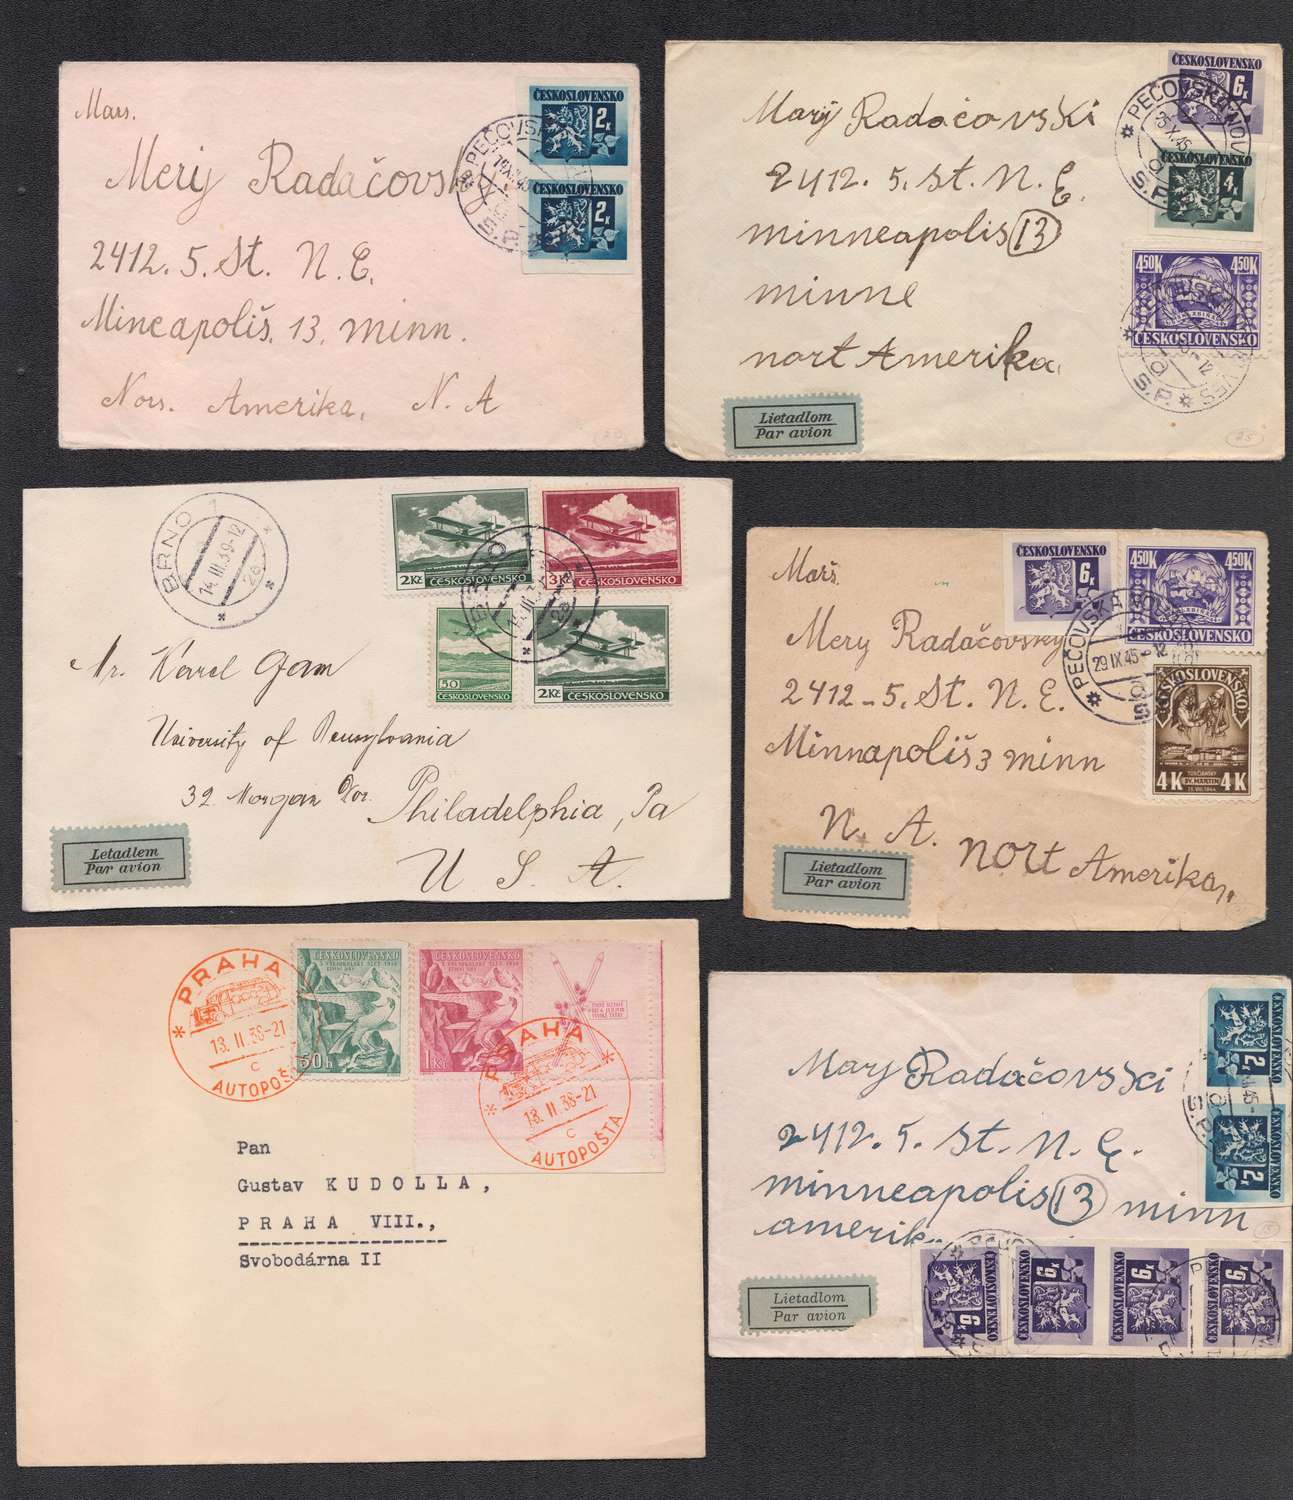 Mars.
Merij Radačovs
2412. 5. St. N. E.
Mineapoliš. 13. minn.
Nors. Amerika, N. A
ČESKOSLOVENSKO
2K
ČESKOSLOVENSKO
2K
PEČOVSK
S.P.
Marÿ Radačovski
2412. 5. st. N. E.
minneapolis 13
minne
nort Amerika.
ČESKOSLOVENSKO
6K
ČESKOSLOVENSKO
4K
4.50K 4.50K
ČESKOSLOVENSKO
PEČOVSKÁ NOV
25.X.45
S.P.
S.P.
Lietadlom
Par avion
25
BRNO 1
14.III.39-12
2a
2Kč ČESKOSLOVENSKO
3K ČESKOSLOVENSKO
50 ČESKOSLOVENSKO
2Kč ČESKOSLOVENSKO
2a
Mr. Karel Gam
University of Pennsylvania
32 Morgan
Philadelphia, Pa
U S A.
Letadlem
Par avion
Marš.
Mery Radačovsky
2412 - 5. St. N. E.
Minnapoliš 3 minn
N. A. nort Amerika,
ČESKOSLOVENSKO
6K
4.50K 4.50K
ČESKOSLOVENSKO
ČESKOSLOVENSKO
4K 4K
TURČIANSKY
SV. MARTIN
PEČOVSKÁ
29 IX 45-12
Lietadlom
Par avion
PRAHA
13. II 38-21
c
AUTOPOŠ
ČESKOSLOVENSKO
50h
ČESKOSLOVENSKO
1Kč
PRAHA
13. II 38-21
c
AUTOPOŠTA
Pan
Gustav KUDOLLA,
PRAHA VIII.,
Svobodárna II
Marj Radačovski
2412. 5. St. N. E.
minneapolis 13 minn
amerik
ČESKOSLOVENSKO
2K
ČESKOSLOVENSKO
2K
ČESKOSLOVENSKO
6K
ČESKOSLOVENSKO
6K
ČESKOSLOVENSKO
6K
ČESKOSLOVENSKO
6K
Lietadlom
Par avion